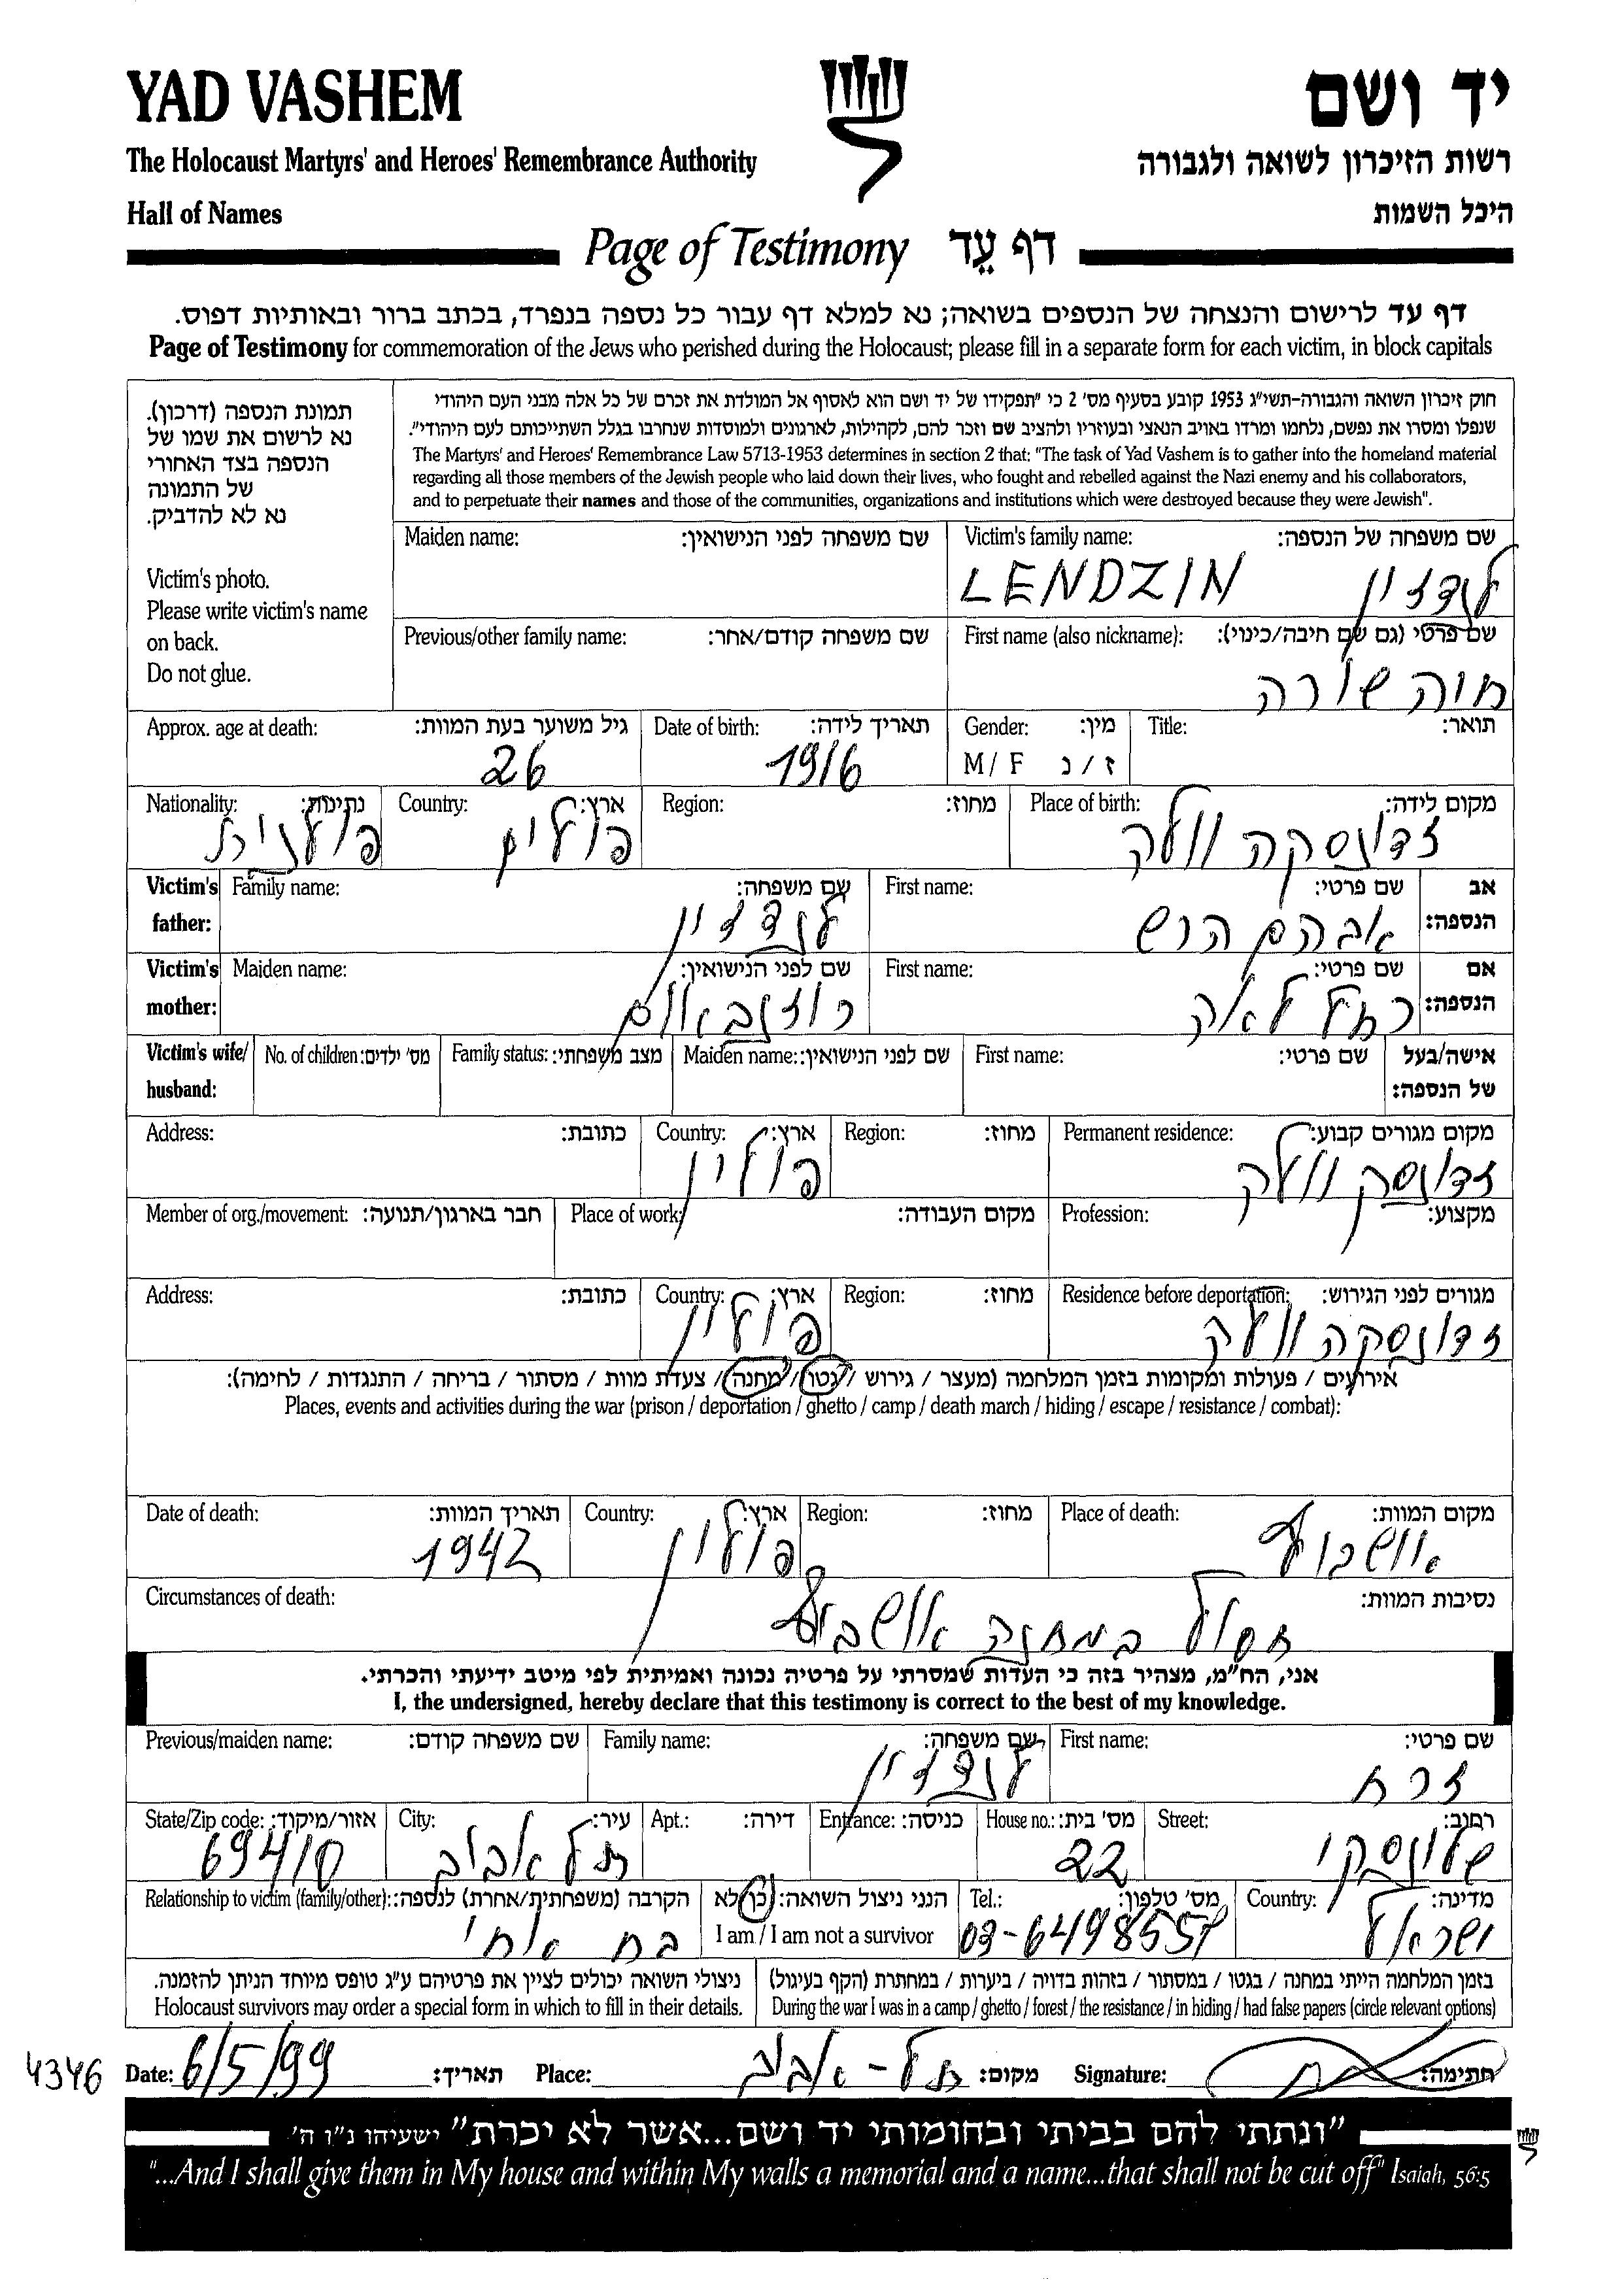 YAD VASHEM
יד ושם
The Holocaust Martyrs' and Heroes' Remembrance Authority
רשות הזיכרון לשואה ולגבורה
Hall of Names
היכל השמות
Page of Testimony דף עֵד
דף עד לרישום והנצחה של הנספים בשואה; נא למלא דף עבור כל נספה בנפרד, בכתב ברור ובאותיות דפוס.
Page of Testimony for commemoration of the Jews who perished during the Holocaust; please fill in a separate form for each victim, in block capitals
תמונת הנספה (דרכון).
נא לרשום את שמו של
הנספה בצד האחורי
של התמונה
נא לא להדביק.
Victim's photo.
Please write victim's name
on back.
Do not glue.
חוק זיכרון השואה והגבורה-תשי"ג 1953 קובע בסעיף מס' 2 כי "תפקידו של יד ושם הוא לאסוף אל המולדת את זכרם של כל אלה מבני העם היהודי
שנפלו ומסרו את נפשם, נלחמו ומרדו באויב הנאצי ובעוזריו ולהציב שם וזכר להם, לקהילות, לארגונים ולמוסדות שנחרבו בגלל השתייכותם לעם היהודי".
The Martyrs' and Heroes' Remembrance Law 5713-1953 determines in section 2 that: "The task of Yad Vashem is to gather into the homeland material
regarding all those members of the Jewish people who laid down their lives, who fought and rebelled against the Nazi enemy and his collaborators,
and to perpetuate their names and those of the communities, organizations and institutions which were destroyed because they were Jewish".
Maiden name: שם משפחה לפני הנישואין: Victim's family name: שם משפחה של הנספה:
LENDZIN לנדזין
Previous/other family name: שם משפחה קודם/אחר: First name (also nickname): שם פרטי (גם שם חיבה/כינוי):
חוה שורה
Approx. age at death: גיל משוער בעת המוות: Date of birth: תאריך לידה: Gender: מין: Title: תואר:
26 1916 M / F ז / נ
Nationality: נתינות: Country: ארץ: Region: מחוז: Place of birth: מקום לידה:
פולנית פולים זדונסקה וולה
Victim's father: Family name: שם משפחה: First name: שם פרטי: אב הנספה:
לנדזין אברהם הרש
Victim's mother: Maiden name: שם לפני הנישואין: First name: שם פרטי: אם הנספה:
רוזנבאום רחל לאה
Victim's wife/ husband: No. of children: מס' ילדים: Family status: מצב משפחתי: Maiden name: שם לפני הנישואין: First name: שם פרטי: אישה/בעל של הנספה:
Address: כתובת: Country: ארץ: Region: מחוז: Permanent residence: מקום מגורים קבוע:
פולין זדונסק וולה
Member of org./movement: חבר בארגון/תנועה: Place of work: מקום העבודה: Profession: מקצוע:
Address: כתובת: Country: ארץ: Region: מחוז: Residence before deportation: מגורים לפני הגירוש:
פולין זדונסקה וולה
אירועים / פעולות ומקומות בזמן המלחמה (מעצר / גירוש / גטו / מחנה / צעדת מוות / מסתור / בריחה / התנגדות / לחימה):
Places, events and activities during the war (prison / deportation / ghetto / camp / death march / hiding / escape / resistance / combat):
Date of death: תאריך המוות: Country: ארץ: Region: מחוז: Place of death: מקום המוות:
1942 פולין אושבוץ
Circumstances of death: נסיבות המוות:
חסול במחנה אושבוץ
אני, הח"מ, מצהיר בזה כי העדות שמסרתי על פרטיה נכונה ואמיתית לפי מיטב ידיעתי והכרתי.
I, the undersigned, hereby declare that this testimony is correct to the best of my knowledge.
Previous/maiden name: שם משפחה קודם: Family name: שם משפחה: First name: שם פרטי:
לנדזין זרח
State/Zip code: אזור/מיקוד: City: עיר: Apt.: דירה: Entrance: כניסה: House no.: מס' בית: Street: רחוב:
69410 תל אביב 22 שלונסקי
Relationship to victim (family/other): הקרבה (משפחתית/אחרת) לנספה: הנני ניצול השואה: כן/לא Tel.: מס' טלפון: Country: מדינה:
בת אחי I am / I am not a survivor 03-6498557 ישראל
ניצולי השואה יכולים לציין את פרטיהם ע"ג טופס מיוחד הניתן להזמנה.
Holocaust survivors may order a special form in which to fill in their details.
בזמן המלחמה הייתי במחנה / בגטו / במסתור / בזהות בדויה / ביערות / במחתרת (הקף בעיגול)
During the war I was in a camp / ghetto / forest / the resistance / in hiding / had false papers (circle relevant options)
4346 Date: 6/5/99 תאריך: Place: תל-אביב מקום: Signature: חתימה:
"ונתתי להם בביתי ובחומותי יד ושם...אשר לא יכרת" ישעיהו נ"ו ה'
"...And I shall give them in My house and within My walls a memorial and a name...that shall not be cut off" Isaiah, 56:5